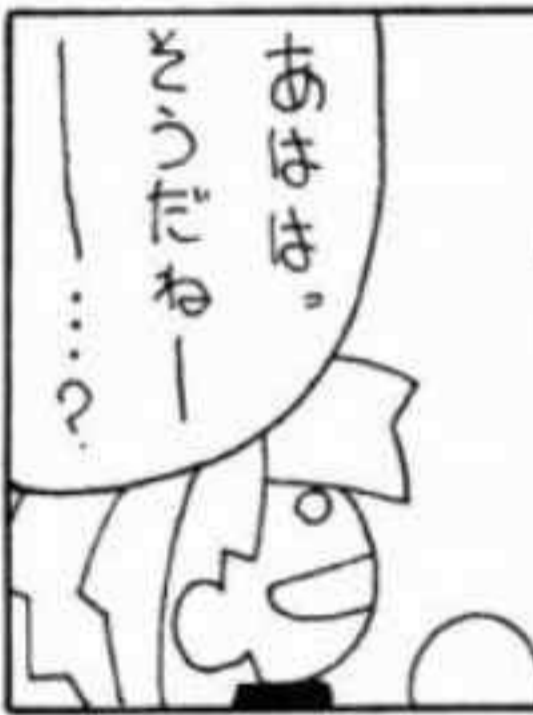 あはは〃
そうだねー
ー…?